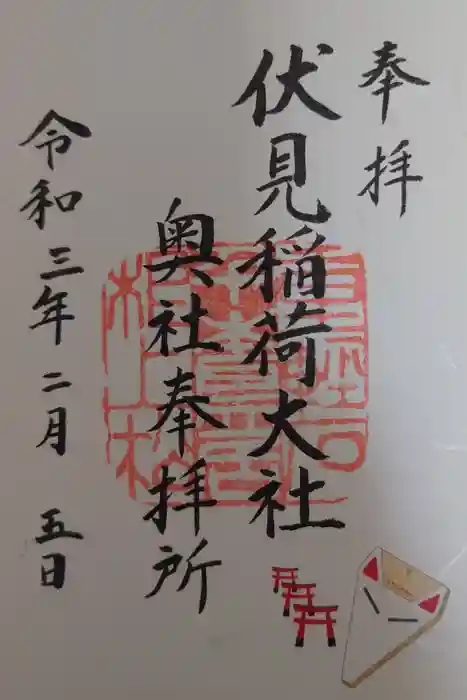 奉拝
伏見稲荷大社
奥社奉拝所
令和三年二月五日